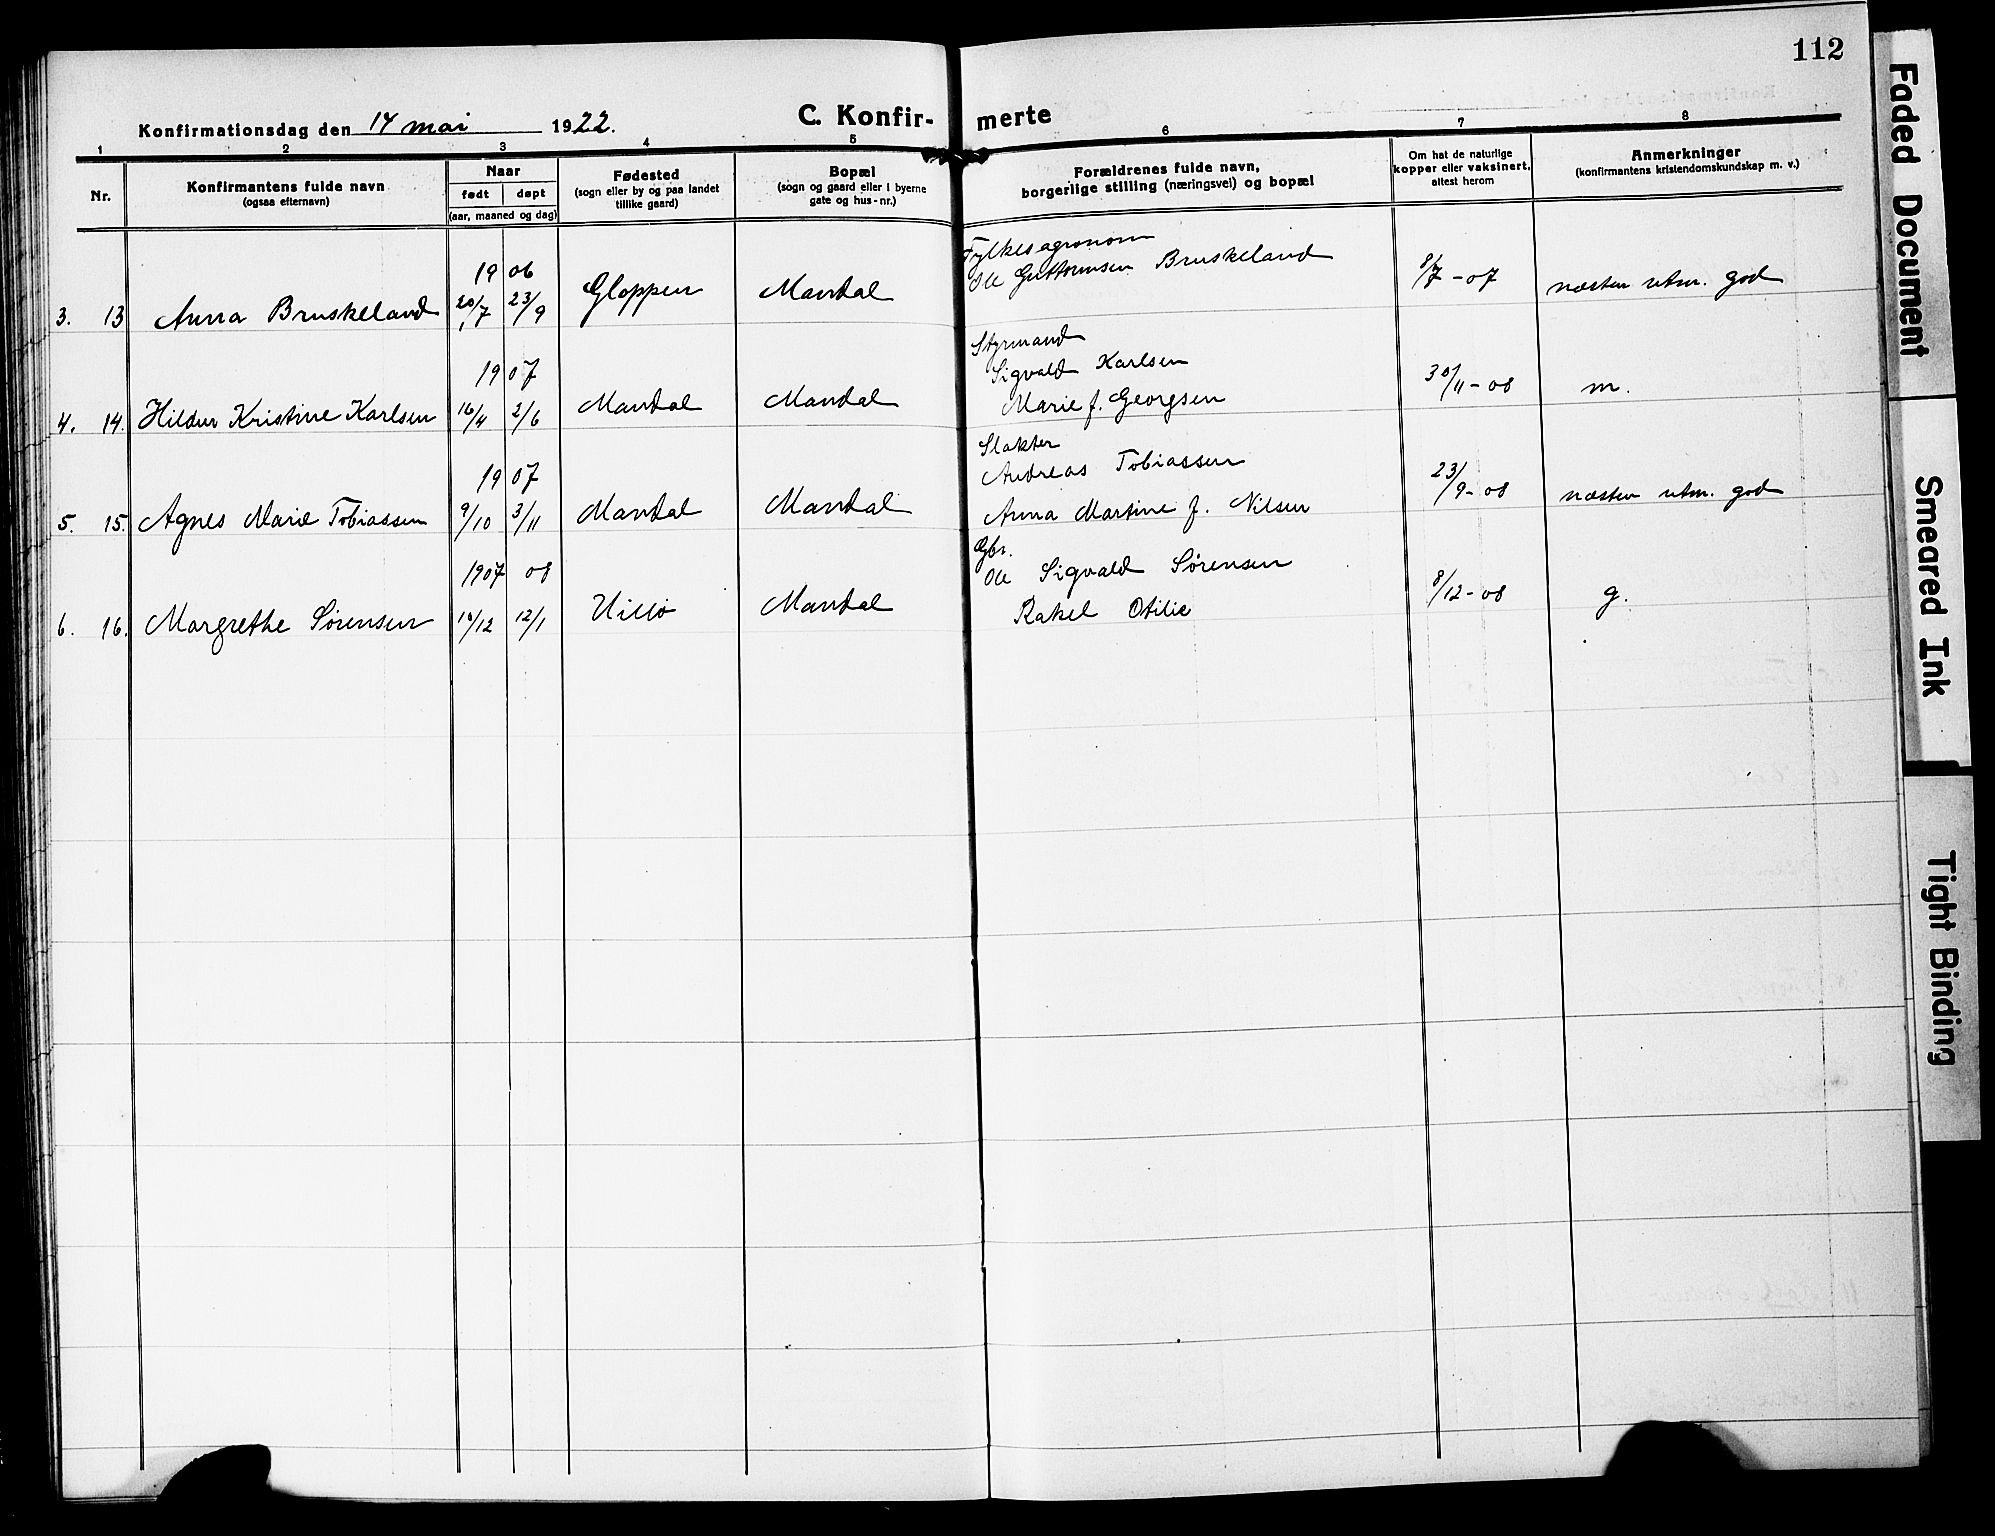 112
Konfirmationsdag den 14 mai 1922.
C. Konfir- merte
1 2 3 4 5 6 7 8
Nr.
Konfirmantens fulde navn
(ogsaa efternavn)
Naar
født døpt
(aar, maaned og dag)
Fødested
(sogn eller by og paa landet
tillike gaard)
Bopæl
(sogn og gaard eller i byerne
gate og hus-nr.)
Forældrenes fulde navn,
borgerlige stilling (næringsvei) og bopæl
Om hat de naturlige
kopper eller vaksinert,
attest herom
Anmerkninger
(konfirmantens kristendomskundskap m. v.)
Fylkesagronom
19 06
Ole Guttormsen Bruskeland
3. 13 Anna Bruskeland 20/7 23/9 Gloppen Mandal 8/7-07 næsten utm. god
Styrmand
19 07
Sigvald Karlsen
4. 14. Hildur Kristine Karlsen 16/4 2/6 Mandal Mandal Marie f. Georgsen 30/11-08 m.
Slakter
19 07
Andreas Tobiassen
5. 15. Agnes Marie Tobiassen 9/10 3/11 Mandal Mandal Anna Martine f. Nilsen 23/9-08 næsten utm. god
Gbr.
1907 08
Ole Sigvald Sørensen
6. 16. Margrethe Sørensen 10/12 12/1 Mandal Rakel Otilie 8/12-08 g.
Faded Document
Smeared Ink
Tight Binding